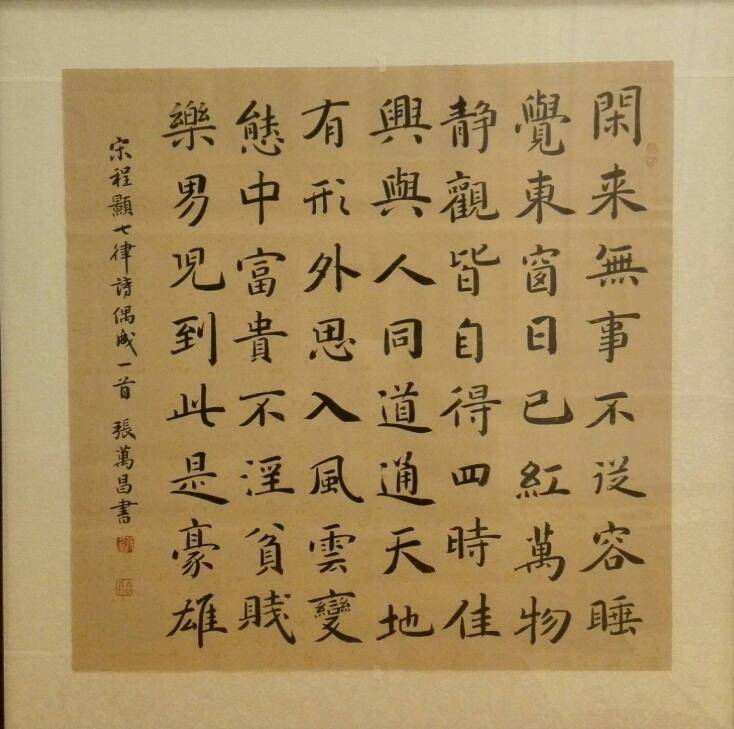 閑来無事不従容睡
覺東窗日已紅萬物
静觀皆自得四時佳
興與人同道通天地
有形外思入風雲變
態中富貴不淫貧賤
樂男兒到此是豪雄
宋程顥七律詩偶成一首 張萬昌書